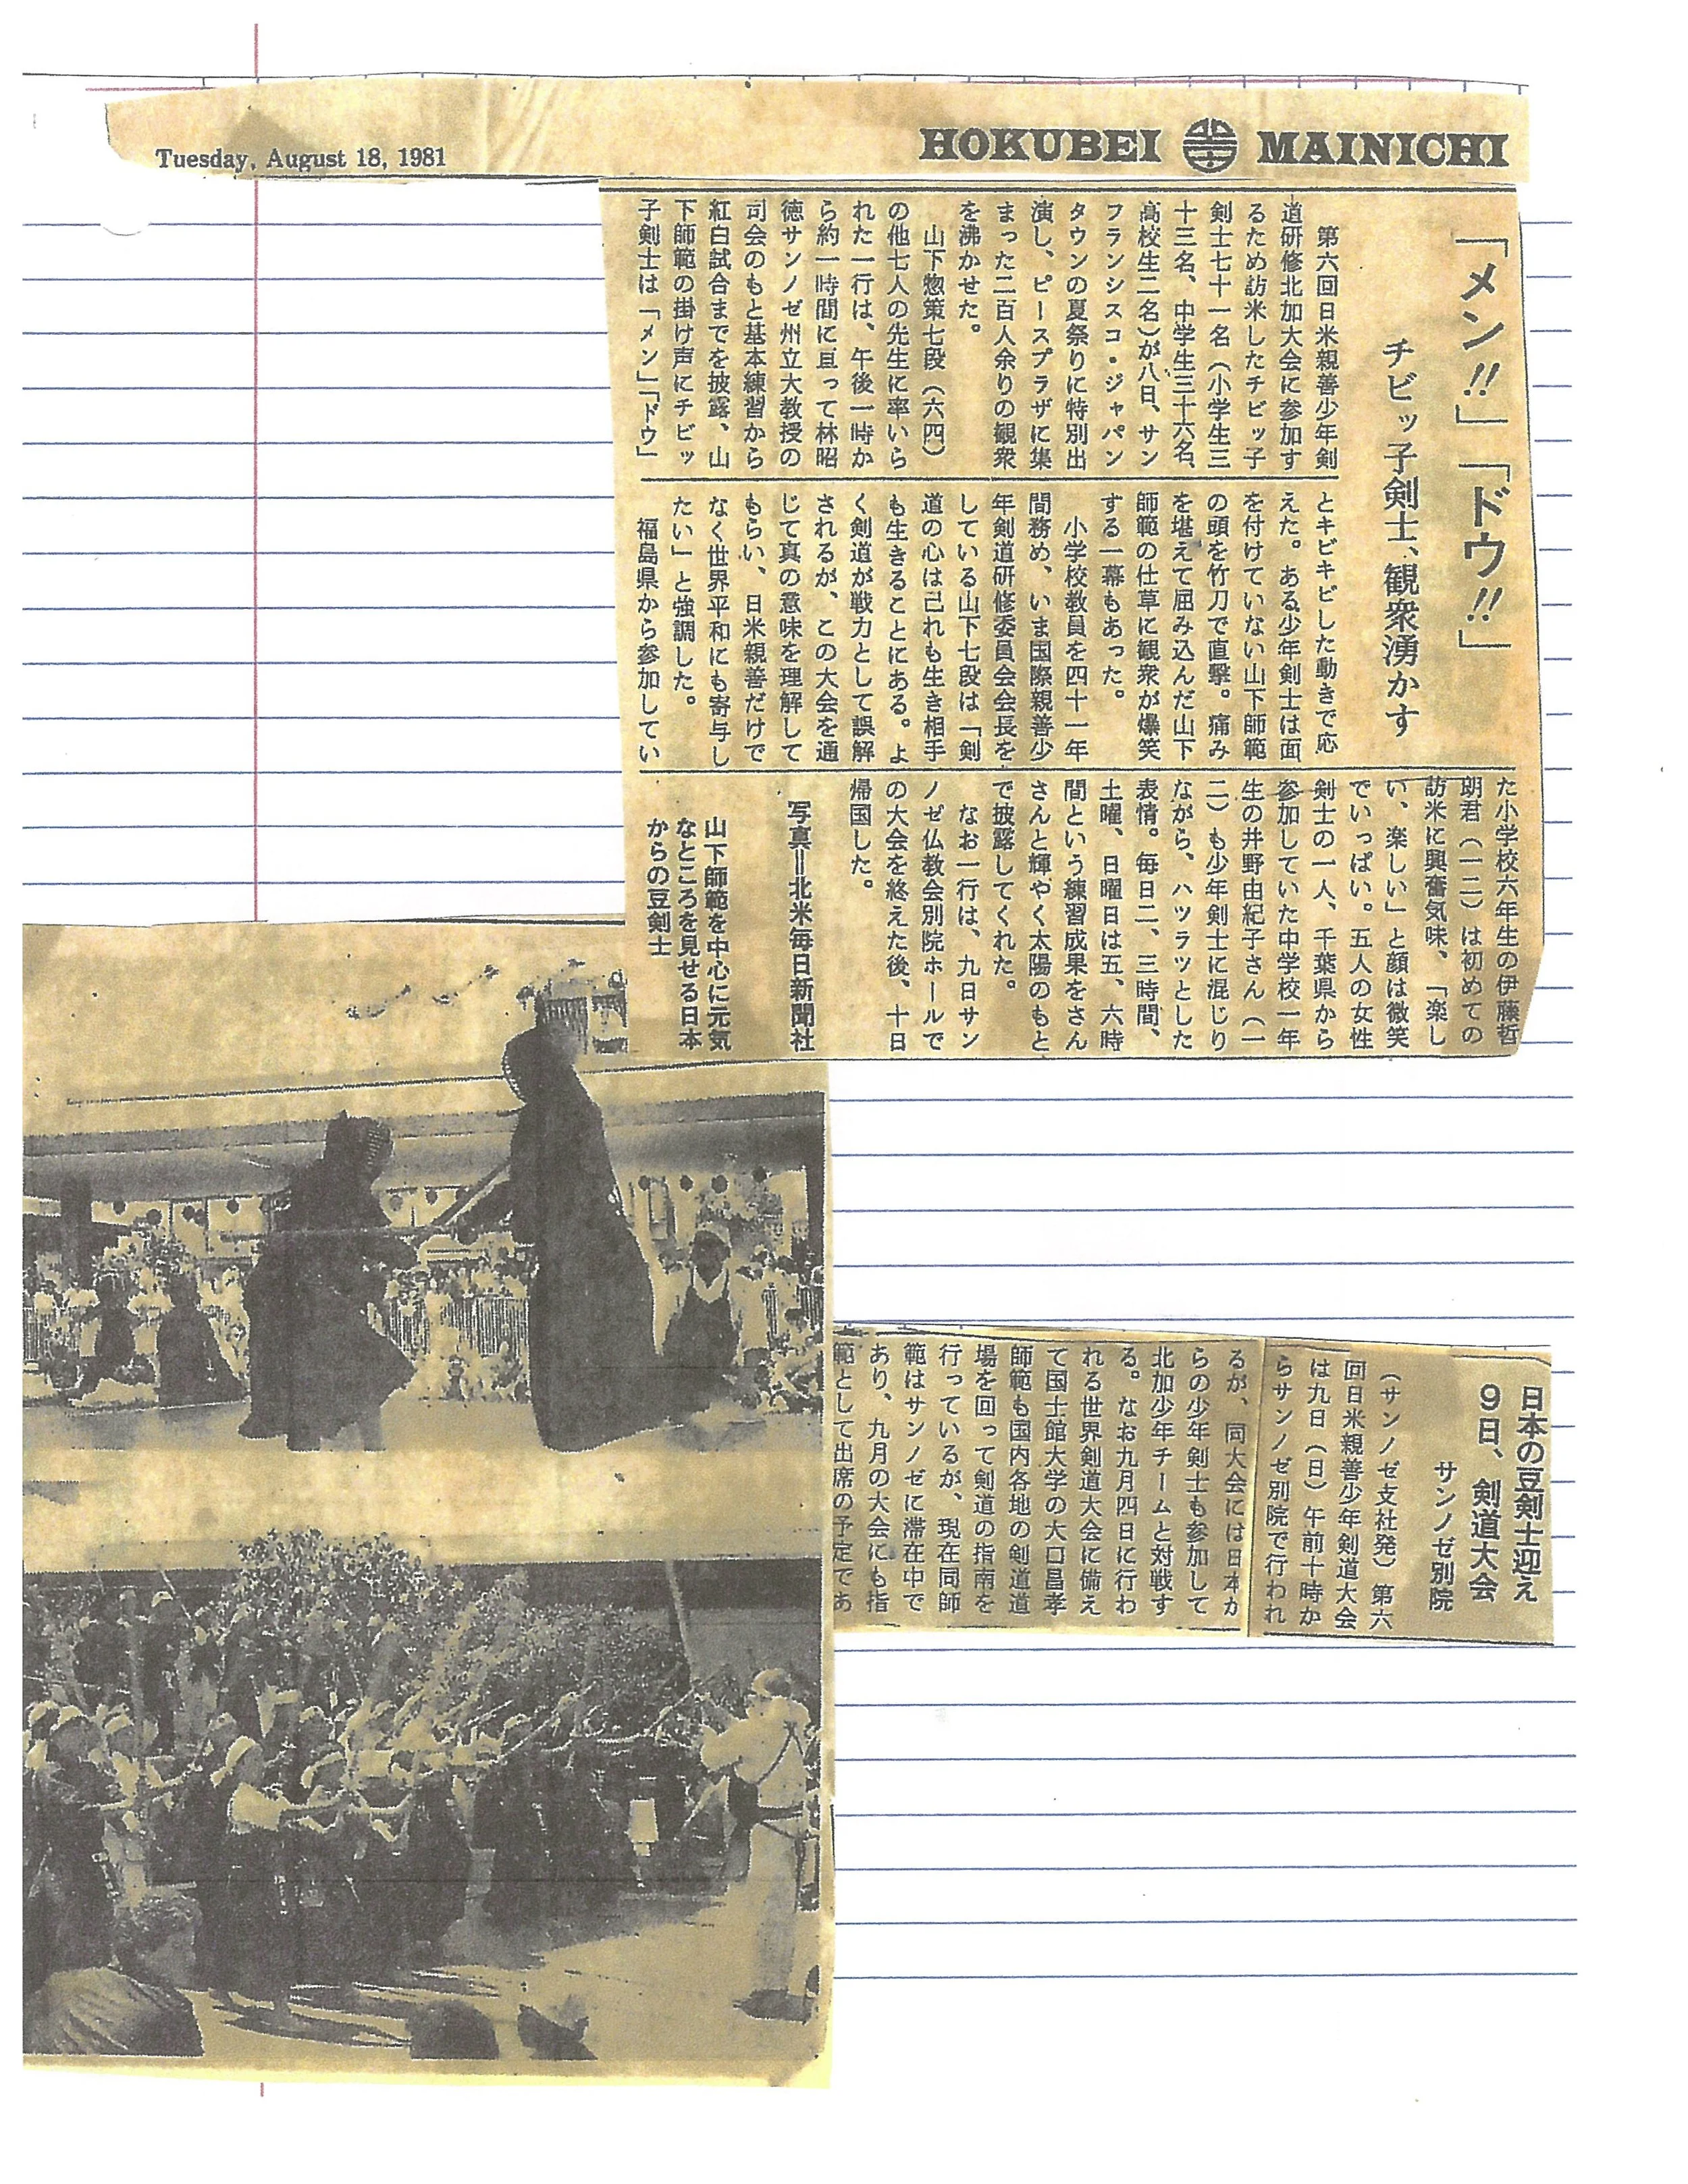 Tuesday, August 18, 1981
HOKUBEI MAINICHI
「メン!!」「ドウ!!」
チビッ子剣士、観衆湧かす
第六回日米親善少年剣
道研修北加大会に参加す
るため訪米したチビッ子
剣士七十一名（小学生三
十三名、中学生三十六名、
高校生二名）が八日、サン
フランシスコ・ジャパン
タウンの夏祭りに特別出
演し、ピースプラザに集
まった二百人余りの観衆
を沸かせた。
山下惣策七段（六四）
の他七人の先生に率いら
れた一行は、午後一時か
ら約一時間に亘って林昭
徳サンノゼ州立大教授の
司会のもと基本練習から
紅白試合までを披露、山
下師範の掛け声にチビッ
子剣士は「メン」「ドウ」
とキビキビした動きで応
えた。ある少年剣士は面
を付けていない山下師範
の頭を竹刀で直撃。痛み
を堪えて屈み込んだ山下
師範の仕草に観衆が爆笑
する一幕もあった。
小学校教員を四十一年
間務め、いま国際親善少
年剣道研修委員会会長を
している山下七段は「剣
道の心は己れも生き相手
も生きることにある。よ
く剣道が戦力として誤解
されるが、この大会を通
じて真の意味を理解して
もらい、日米親善だけで
なく世界平和にも寄与し
たい」と強調した。
福島県から参加してい
た小学校六年生の伊藤哲
朗君（一二）は初めての
訪米に興奮気味、「楽し
い、楽しい」と顔は微笑
でいっぱい。五人の女性
剣士の一人、千葉県から
参加していた中学校一年
生の井野由紀子さん（一
二）も少年剣士に混じり
ながら、ハツラツとした
表情。毎日二、三時間、
土曜、日曜日は五、六時
間という練習成果をさん
さんと輝やく太陽のもと
で披露してくれた。
なお一行は、九日サン
ノゼ仏教会別院ホールで
の大会を終えた後、十日
帰国した。
写真＝北米毎日新聞社
山下師範を中心に元気
なところを見せる日本
からの豆剣士
日本の豆剣士迎え
9日、剣道大会
サンノゼ別院
（サンノゼ支社発）第六
回日米親善少年剣道大会
は九日（日）午前十時か
らサンノゼ別院で行われ
るが、同大会には日本か
らの少年剣士も参加して
北加少年チームと対戦す
る。なお九月四日に行わ
れる世界剣道大会に備え
て国士館大学の大口昌孝
師範も国内各地の剣道道
場を回って剣道の指南を
行っているが、現在同師
範はサンノゼに滞在中で
あり、九月の大会にも指
範として出席の予定であ